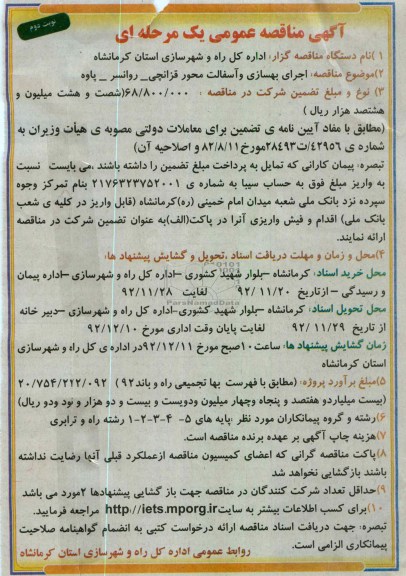 نوبت دوم
آگهی مناقصه عمومی یک مرحله ای
۱)نام دستگاه مناقصه گزار: اداره کل راه و شهرسازی استان کرمانشاه
۲)موضوع مناقصه: اجرای بهسازی وآسفالت محور قزانچی_ روانسر _ پاوه
۳) نوع و مبلغ تضمین شرکت در مناقصه : ۶۸/۸۰۰/۰۰۰(شصت و هشت میلیون و
هشتصد هزار ریال )
(مطابق با مفاد آیین نامه ی تضمین برای معاملات دولتی مصوبه ی هیأت وزیران به
شماره ی ۴۲۹۵۶/ت۲۸۴۹۳مورخ۸۲/۸/۱۱ و اصلاحیه آن)
تبصره: پیمان کارانی که تمایل به پرداخت مبلغ تضمین را داشته باشند ،می بایست نسبت
به واریز مبلغ فوق به حساب سیبا به شماره ی ۲۱۷۶۳۲۳۷۵۲۰۰۱ بنام تمرکز وجوه
سپرده نزد بانک ملی شعبه میدان امام خمینی (ره)کرمانشاه (قابل واریز در کلیه ی شعب
بانک ملی) اقدام و فیش واریزی آنرا در پاکت(الف)به عنوان تضمین شرکت در مناقصه
ارائه نمایند.
۴)محل و زمان و مهلت دریافت اسناد ،تحویل و گشایش پیشنهاد ها:
محل خرید اسناد: کرمانشاه –بلوار شهید کشوری –اداره کل راه و شهرسازی –اداره پیمان
و رسیدگی – ازتاریخ ۹۲/۱۱/۲۰ لغایت ۹۲/۱۱/۲۸
محل تحویل اسناد: کرمانشاه –بلوار شهید کشوری-اداره کل راه و شهرسازی –دبیر خانه
از تاریخ ۹۲/۱۱/۲۹ لغایت پایان وقت اداری مورخ ۹۲/۱۲/۱۰
زمان گشایش پیشنهاد ها: ساعت۱۰صبح مورخ ۹۲/۱۲/۱۱در اداره ی کل راه و شهرسازی
استان کرمانشاه
۵)مبلغ برآورد پروژه: (مطابق با فهرست بها تجمیعی راه و باند۹۲ ) ۲۰/۷۵۴/۲۱۲/۰۹۲
(بیست میلیاردو هفتصد و پنجاه وچهار میلیون ودویست و بیست و دو هزار و نود ودو ریال)
۶)رشته و گروه پیمانکاران مورد نظر :پایه های ۵- ۴-۳-۲-۱ رشته راه و ترابری
۷)هزینه چاپ آگهی بر عهده برنده مناقصه است.
۸)پاکت مناقصه گرانی که اعضای کمیسیون مناقصه ازعملکرد قبلی آنها رضایت نداشته
باشند بازگشایی نخواهد شد
۹)حداقل تعداد شرکت کنندگان در مناقصه جهت باز گشایی پیشنهادها ۲مورد می باشد
۱۰)برای کسب اطلاعات بیشتر به سایت http://iets.mporg.ir مراجعه فرمایید.
تبصره: جهت دریافت اسناد مناقصه ارائه درخواست کتبی به انضمام گواهینامه صلاحیت
پیمانکاری الزامی است.
روابط عمومی اداره کل راه و شهرسازی استان کرمانشاه
ParsNamadData